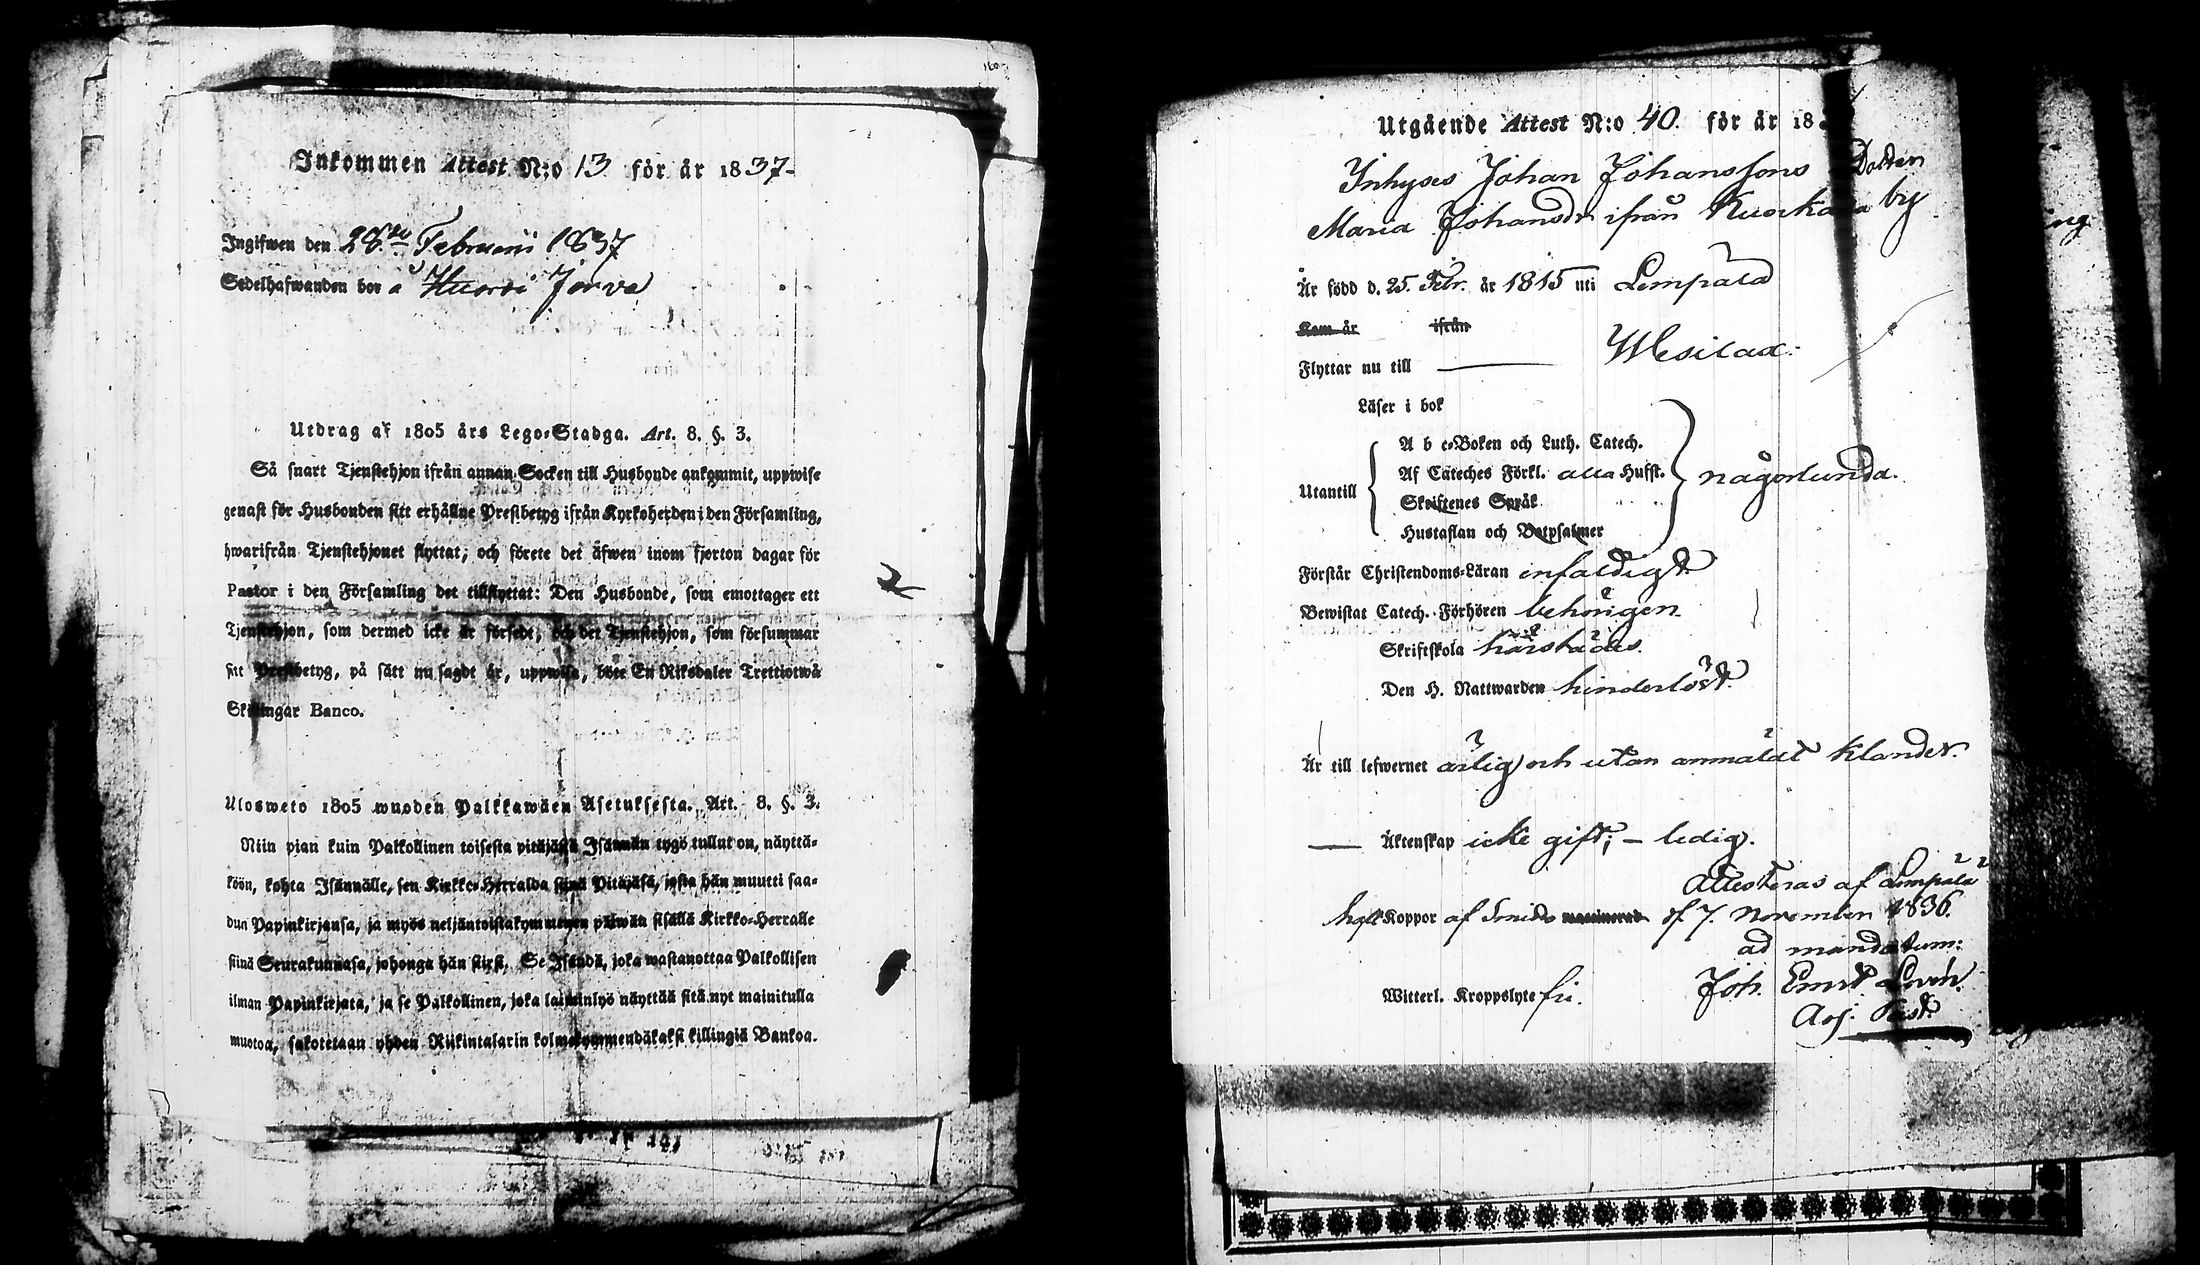 Inkommen Attest N:o 13 för år 1837-
Ingifwen den 28de Februarii 1837
Sedelhafwanden bor å Huorsi Jerve
Utdrag af 1805 års Lego-Stadga. Art. 8. §. 3.
Så snart Tjenstehjon ifrån annan Socken till Husbonde ankommit, uppwise
genast för Husbonden sitt erhållne Prestbetyg ifrån Kyrkoherden i den Församling,
hwarifrån Tjenstehjonet flyttat, och förete det äfwen inom fjorton dagar för
Pastor i den Församling det tillflyttat: Den Husbonde, som emottager ett
Tjenstehjon, som dermed icke är försedt, och det Tjenstehjon, som försummar
sitt Prestbetyg, på sätt nu sagdt är, uppwisa, böte En Riksdaler Trettiotwå
Skillingar Banco.
Ulosweto 1805 wuoden Palkkawäen Asetuksesta. Art. 8. §. 3.
Niin pian kuin Palkollinen toisesta pitäjästä Isännän tygö tullut on, näyttä-
köön, kohta Isännälle, sen Kirkko-Herralda siinä Pitäjäsä, josta hän muutti saa-
dun Papinkirjansa, ja myös neljäntoistakymmenen päiwän sisällä Kirkko-Herralle
siinä Seurakunnasa, johonga hän siirsi. Se Isändä, joka wastanottaa Palkollisen
ilman Papinkirjata, ja se Palkollinen, joka laiminlyö näyttää sitä nyt mainitulla
muotoa, sakotetaan yhden Riikintalarin kolmekymmendäkaksi killingiä Bankoa.
Utgående Attest N:o 40. för år 18
Inhyses Johan Johanssons Dotter
Maria Johansdr ifrån Kuorkala by
Är född d. 25. Febr. år 1815 uti Lempälä
Kom år ifrån
Flyttar nu till Wesilax.
Läser i bok
A b c-Boken och Luth. Catech.
Af Cateches Förkl. alla Hufst.
Utantill någorlunda.
Skriftenes Språk
Hustaflan och Botpsalmer
Förstår Christendoms-Läran enfaldigt.
Bewistat Catech. Förhören behörigen.
Skriftskola härstädes.
Den H. Nattwarden hinderlöst.
Är till lefwernet ärlig och utan anmäldt klander.
Äktenskap icke gift; - ledig.
Attesteras af Lempälä
haft Koppor af Smitto vaccinerad d. 7. November 1836.
ad mandatum:
Witterl. Kroppslyte fri. Joh. Ernst Lovén.
Adj. Past.